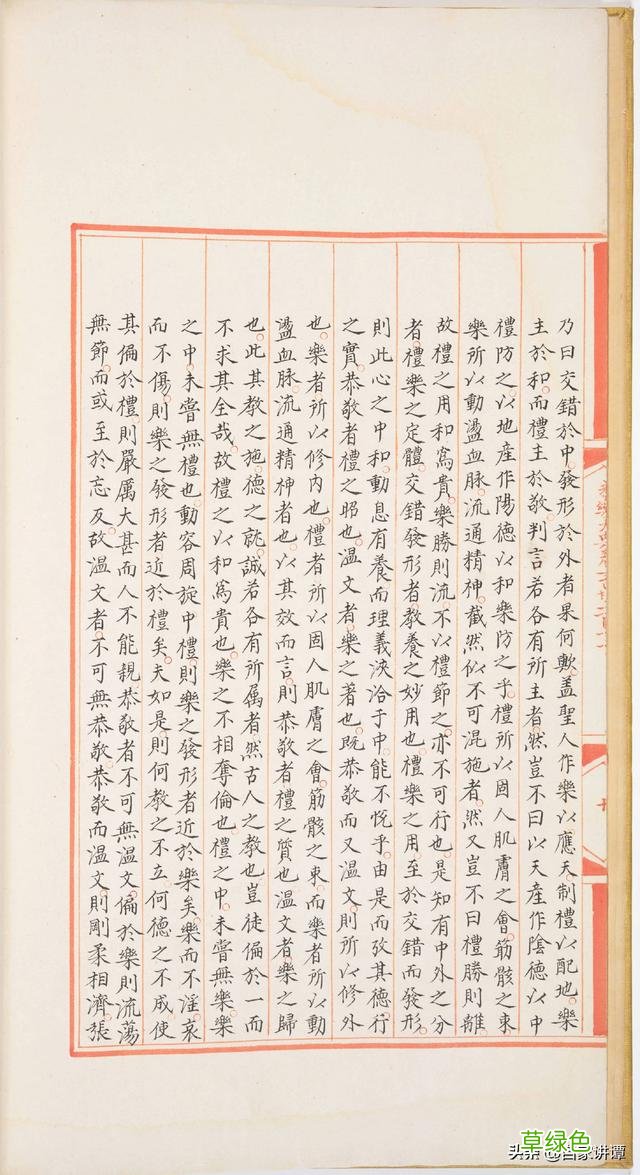 乃曰交錯於中。發形於外者果何歟。蓋聖人作樂以應天。制禮以配地。樂
主於和。而禮主於敬。判言若各有所主者。然豈不曰以天產作陰德。以中
禮防之。以地產作陽德。以和樂防之乎。禮所以固人肌膚之會。筋骸之束。
樂所以動盪血脉。流通精神。截然似不可混施者。然又豈不曰禮勝則離。
故禮之用和爲貴。樂勝則流。不以禮節之。亦不可行也。是知有中外之分
者。禮樂之定體。交錯發形者。教養之妙用也。禮樂之用。至於交錯而發形。
則此心之中和。動息有養。而理義浹洽于中。能不悅乎。由是而攷其德行
之實。恭敬者禮之昭也。溫文者。樂之著也。既恭敬而又溫文。則所以修外
也。樂者所以修内也。禮者所以固人肌膚之會。筋骸之束。而樂者所以動
盪血脉。流通精神者也。以其效而言。則恭敬者禮之質也。溫文者樂之歸
也。此其教之施。德之就。誠若各有所属者。然古人之教也。豈徒偏於一而
不求其全哉。故禮之以和爲貴也。樂之不相奪倫也。禮之中。未嘗無樂。樂
之中。未嘗無禮也。動容周旋中禮。則樂之發形者近於樂矣。樂而不淫。哀
而不傷。則樂之發形者近於禮矣。夫如是。則何教之不立。何德之不成。使
其偏於禮。則嚴厲大甚。而人不能親。恭敬者不可無溫文。偏於樂則流蕩
無節。而或至於忘反。故溫文者。不可無恭敬。恭敬而溫文。則剛柔相濟。張
头条 @百家讲谭
草绿色